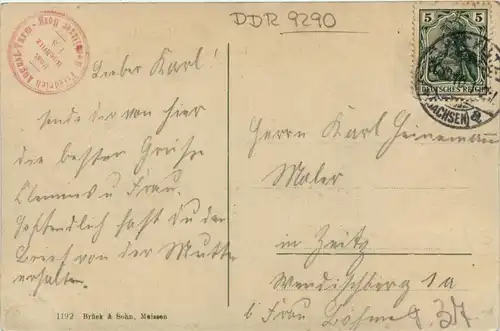 DDR 9290
5
DEUTSCHES REICH
(SACHSEN)
Friedrich August-Turm
Lieber Karl!
sende dir von hier
die besten Grüße
Clemens u. Frau.
Hoffendlich hast Du den
Brief von der Mutter
erhalten.
Herrn Karl Heinemann
Maler
in Zeitz
Wendischberg 1a
b. Frau Böhme
1192 Brück & Sohn, Meissen